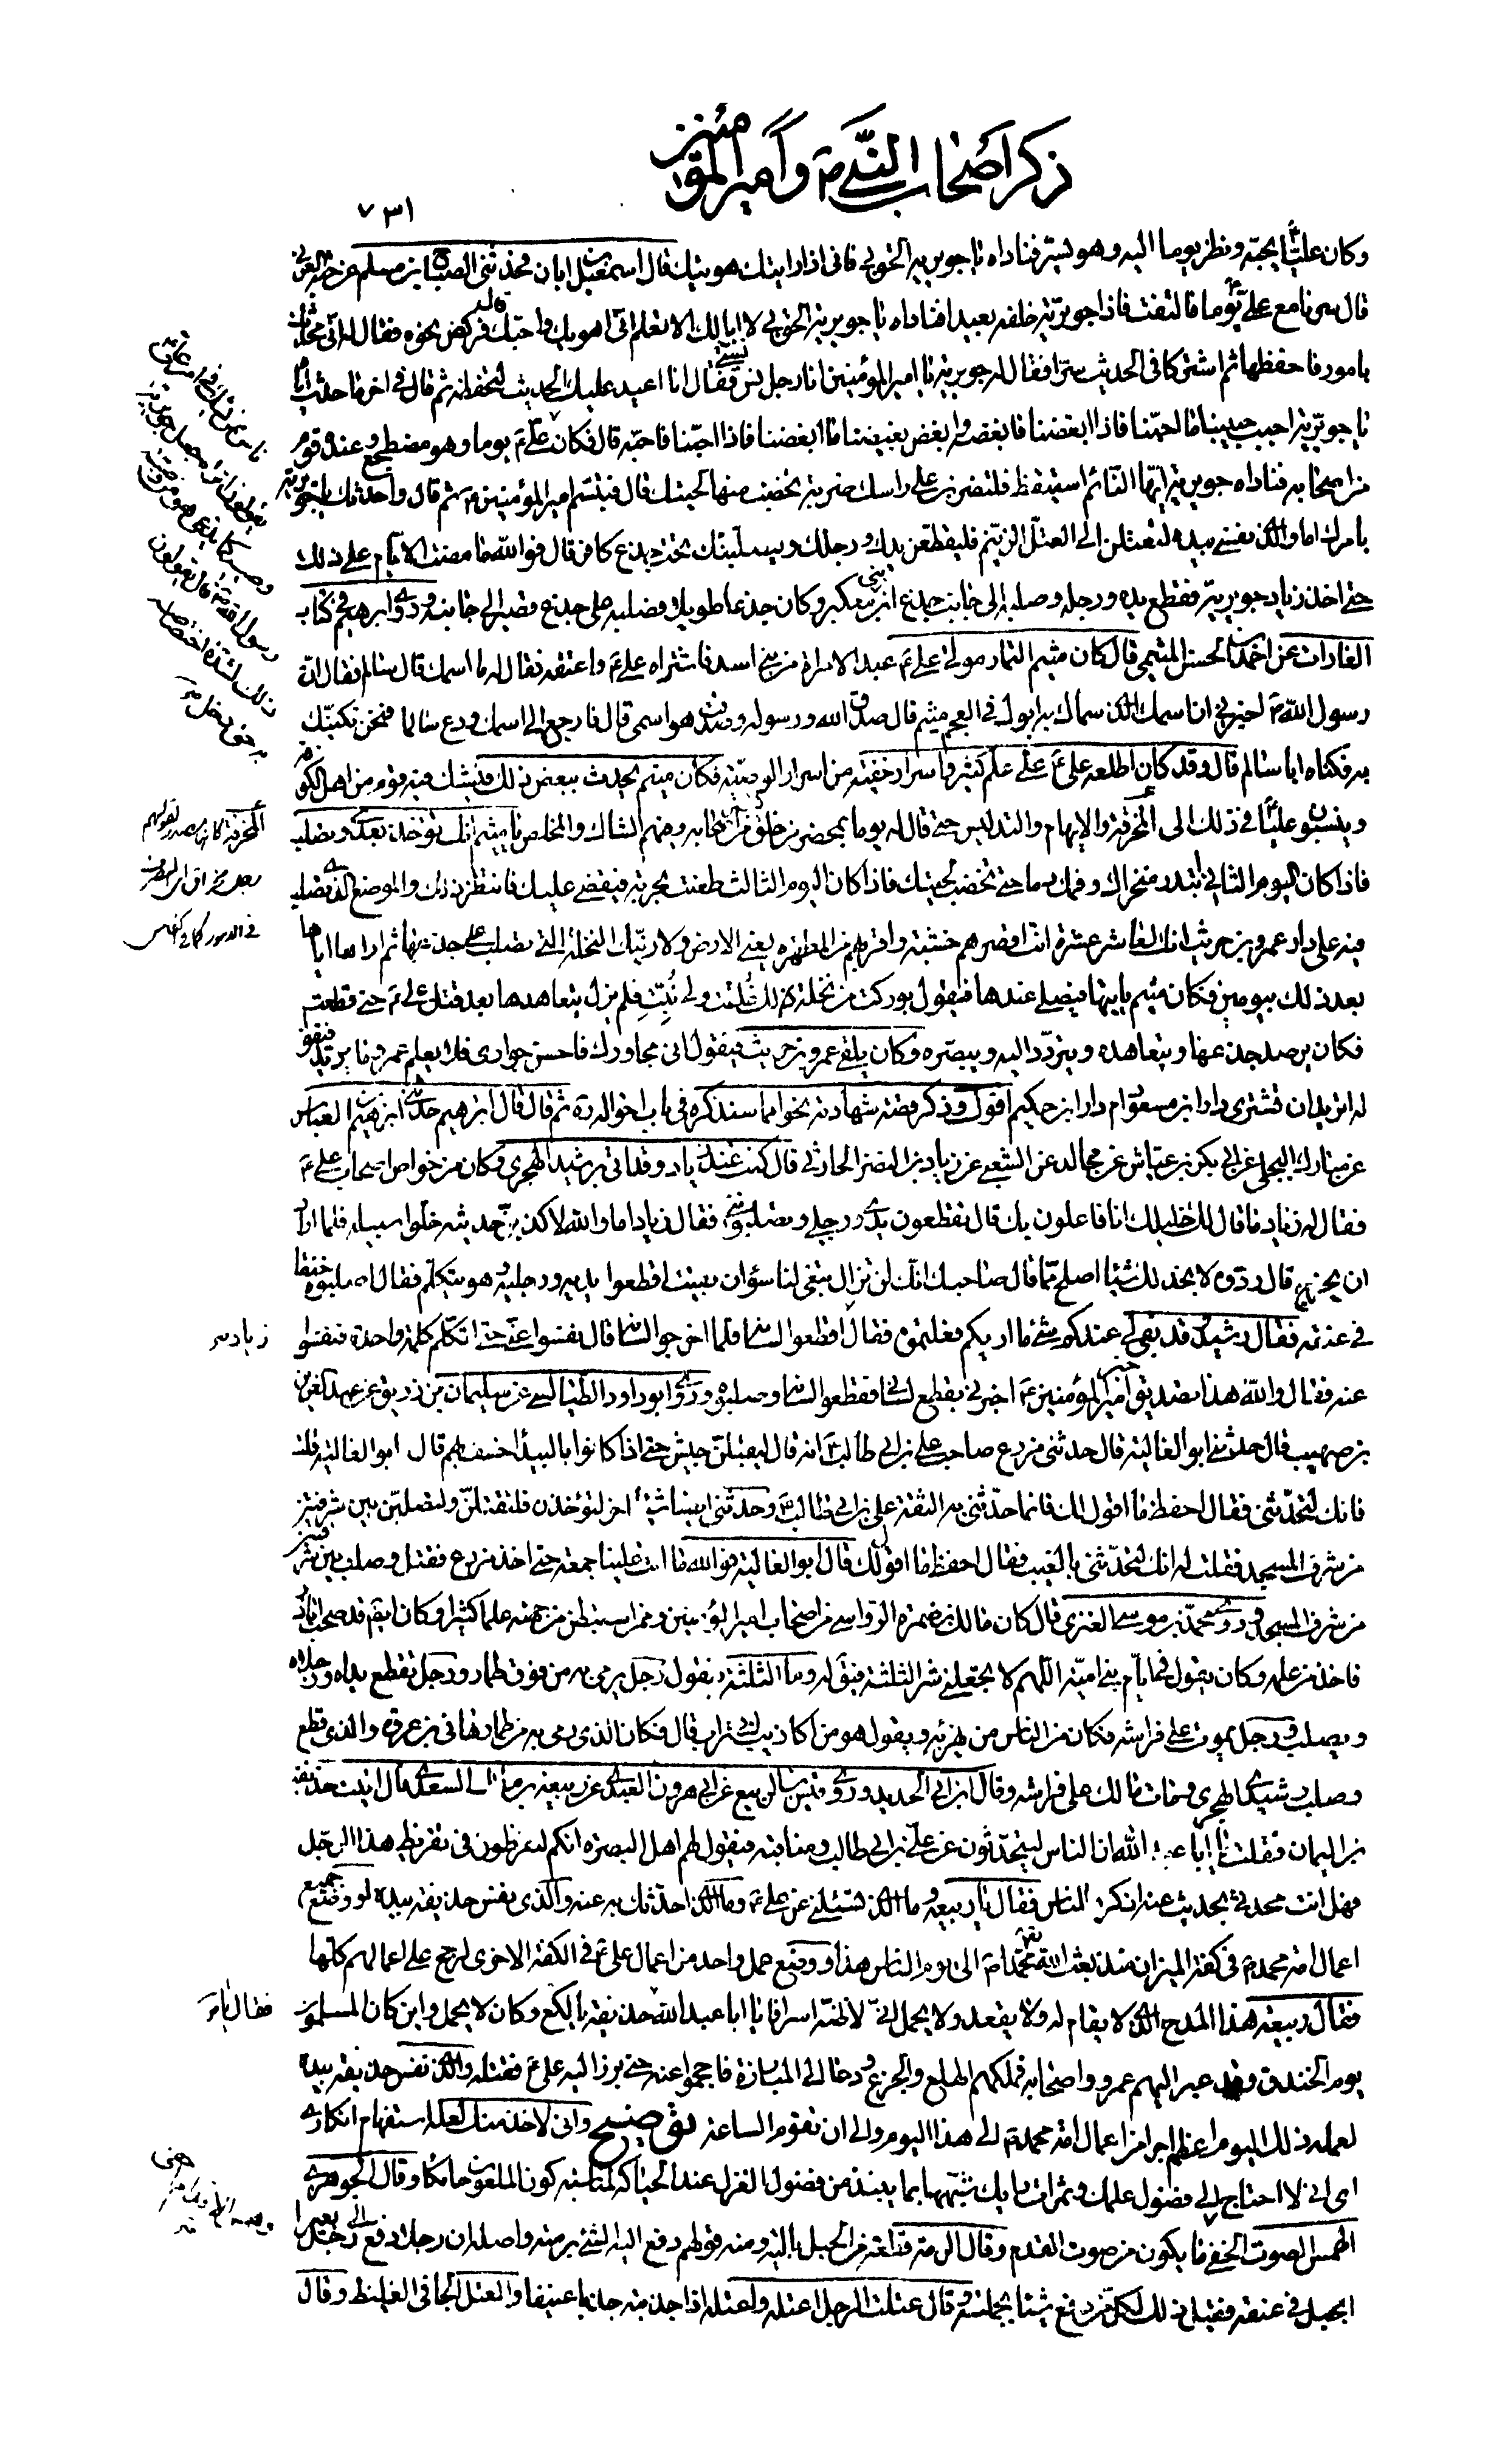 ذكر أصحاب النبي ص وأمير المؤمنين
٧٣١
وكان علي ع يحبه ونظر يوما اليه وهو يسير فناداه يا جويرية الحق بي فاني اذا رايتك هويتك قال اسمعيل بن ابان فحدثني الصباح بن مسلم عن حبة العرني
قال سرنا مع علي ع يوما فالتفت فاذا جويرية خلفه بعيدا فناداه يا جويرية الحق بي لا ابا لك الا تعلم اني اهويك واحبك قال فركض نحوه فقال له اني محدثك
بامور فاحفظها ثم اشتركا في الحديث سرا فقال له جويرية يا امير المؤمنين انا رجل نسي فقال انا اعيد عليك الحديث لتحفظه ثم قال في اخر ما حدثه اياه
يا جويرية احبب حبيبنا ما احبنا فاذا ابغضنا فابغضه وابغض بغيضنا ما ابغضنا فاذا احبنا فاحبه قال فكان علي ع يوما وهو مضطجع وعنده قوم
من اصحابه فناداه جويرية ايها النائم استيقظ فلتضربن على راسك ضربة تخضب منها لحيتك قال فتبسم امير المؤمنين ع ثم قال واحدثك يا جويرية
بامرك اما والذي نفسي بيده لتعتلن الى العتل الزنيم فليقطعن يدك ورجلك وليصلبنك تحت جذع كافر قال فوالله ما مضت الايام على ذلك
حتى اخذ زياد جويرية فقطع يده ورجله وصلبه الى جانب جذع ابن معكبر وكان جذعا طويلا فصلبه على جذع قصير الى جانبه وروى ابرهيم في كتاب
الغارات عن احمد بن الحسن الميثمي قال كان ميثم التمار مولى علي ع عبدا لامراة من بني اسد فاشتراه علي ع واعتقه فقال له ما اسمك قال سالم فقال ان
رسول الله ص اخبرني ان اسمك الذي سماك به ابوك في العجم ميثم قال صدق الله ورسوله وصدقت هو اسمي قال فارجع الى اسمك ودع سالما فنحن نكنيك
به فكناه ابا سالم قال وقد كان اطلعه علي ع على علم كثير واسرار خفية من اسرار الوصية فكان ميثم يحدث ببعض ذلك فيشك فيه قوم من اهل الكوفة
وينسبون عليا ع في ذلك الى المخرقة والايهام والتدليس حتى قال له يوما بمحضر من خلق من اصحابه وفيهم الشاك والمخلص يا ميثم انك تؤخذ بعدي وتصلب
فاذا كان اليوم الثاني ابتدر منخراك وفمك دما حتى تخضب لحيتك فاذا كان اليوم الثالث طعنت بحربة فيقضى عليك فانتظر ذلك والموضع الذي تصلب
فيه على دار عمرو بن حريث انك لعاشر عشرة انت اقصرهم خشبة واقربهم من المطهرة يعني الارض ولارينك النخلة التي تصلب على جذعها ثم اراها اياها
بعد ذلك بيومين فكان ميثم ياتيها فيصلي عندها فيقول بوركت من نخلة لك خلقت ولي نبت فلم يزل يتعاهدها بعد قتل علي ع حتى قطعت
فكان يرصد جذعها ويتعاهده ويتردد اليه ويبصره وكان يلقى عمرو بن حريث فيقول اني مجاورك فاحسن جواري فلا يعلم عمرو ما يريد فيقول
له اتريد ان تشتري دار ابن مسعود ام دار ابن حكيم اقول وذكر قصة شهادته نحوا مما سنذكره في باب احواله ره ثم قال قال ابرهيم حدثني ابرهيم بن العباس
عن مبارك البجلي عن ابي بكر بن عياش عن مجالد عن الشعبي عن زياد بن النضر الحارثي قال كنت عند زياد وقد اتي برشيد الهجري وكان من خواص اصحاب علي ع
فقال له زياد ما قال لك خليلك انا فاعلون بك قال تقطعون يدي ورجلي وتصلبونني فقال زياد اما والله لاكذبن حديثه خلوا سبيله فلما اراد
ان يخرج قال ردوه لا نجد لك شيئا اصلح مما قال صاحبك انك لن تزال تبغي لنا سوءا ان بقيت اقطعوا يديه ورجليه وهو يتكلم فقال اصلبوه خنقا
في عنقه فقال رشيد قد بقي لي عندكم شئ ما اراكم فعلتموه فقال اقطعوا لسانه فلما اخرجوا لسانه قال نفسوا عني حتى اتكلم كلمة واحدة فنفسوا
عنه فقال والله هذا تصديق خبر امير المؤمنين ع اخبرني بقطع لساني فقطعوا لسانه وصلبوه وروى ابو داود الطيالسي عن سليمان بن زريق عن عبد العزيز
بن صهيب قال حدثني ابو العالية قال حدثني مزرع صاحب علي بن ابي طالب ع انه قال ليقبلن جيش حتى اذا كانوا بالبيداء خسف بهم قال ابو العالية فقلت
فانك لتحدثني فقال احفظ ما اقول لك فانما حدثني به الثقة علي بن ابي طالب ع وحدثني ايضا شيئا اخر لتؤخذن فلتقتلن ولتصلبن بين شرفتين
من شرف المسجد فقلت له انك لتحدثني بالغيب فقال احفظ ما اقول لك قال ابو العالية فوالله ما اتت علينا جمعة حتى اخذ مزرع فقتل وصلب بين شرفتين
من شرف المسجد وروى محمد بن موسى العنزي قال كان مالك بن ضمرة الرواسي من اصحاب امير المؤمنين وممن استبطن من جهته علما كثيرا وكان ايضا قد صحب ابا ذر
فاخذ من علمه وكان يقول في ايام بني امية اللهم لا تجعلني شر الثلثة فيقال له وما الثلثة فيقول رجل يرمى به من فوق طمار ورجل تقطع يداه ورجلاه
ويصلب ورجل يموت على فراشه فكان من الناس من يهزء به ويقول هو من اكاذيب ابي تراب قال فكان الذي رمي به من طمار هاني بن عروة والذي قطع
وصلب رشيد الهجري ومات مالك على فراشه وقال ابن ابي الحديد وروى قيس بن الربيع عن ابي هرون العبدي عن ربيعة بن مالك السعدي قال اتيت حذيفة
بن اليمان فقلت يا ابا عبد الله ان الناس ليتحدثون عن علي بن ابي طالب ومناقبه فيقول لهم اهل البصرة انكم لتفرطون في تقريظ هذا الرجل
فهل انت محدثي بحديث عنه اذكره للناس فقال يا ربيعة وما الذي تسئلني عن علي ع وما الذي احدثك به عنه والذي نفس حذيفة بيده لو وضع جميع
اعمال امة محمد ص في كفة الميزان منذ بعث الله تعالى محمدا ص الى يوم الناس هذا ووضع عمل واحد من اعمال علي ع في الكفة الاخرى لرجح على اعمالهم كلها
فقال ربيعة هذا المدح الذي لا يقام له ولا يقعد ولا يحمل اني لاظنه اسرافا يا ابا عبد الله فقال حذيفة يا لكع وكيف لا يحمل واين كان المسلمون
يوم الخندق وقد عبر اليهم عمرو واصحابه فملكهم الهلع والجزع ودعا الى المبارزة فاحجموا عنه حتى برز اليه علي ع فقتله والذي نفس حذيفة بيده
لعمله ذلك اليوم اعظم اجرا من اعمال امة محمد ص الى هذا اليوم والى ان تقوم الساعة توضيح واني لاخذ منك لعله استفهام انكاري
اي اني لا احتاج الى فضول علمك وثمرات بابك شبهها بما يسقط من فضول الغزل عند الحياكة لمناسبة كون الملعون حائكا وقال الجوهري
الهمس الصوت الخفي ما يكون من صوت القدم وقال الرمة قطعة من الحبل بالية ومنه قولهم دفع اليه الشئ برمته واصله ان رجلا دفع الى رجل بعيرا
بحبل في عنقه فقيل ذلك لكل من دفع شيئا بجملته وقال عتلت الرجل اعتله واعتله اذا جذبته جذبا عنيفا والعتل الجافي الغليظ وقال